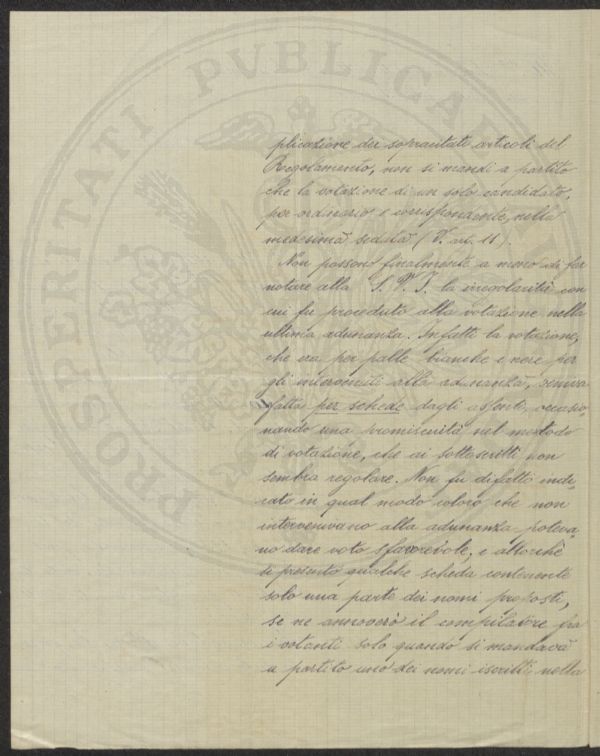 plicazione dei sopracitati articoli del
Regolamento, non si mandi a partito
che la votazione di un solo candidato,
per ordinario e corrispondente, nella
medesima seduta (V. art. 11).
Non possono finalmente a meno di far
notare alla S. V. I. la irregolarità con
cui fu proceduto alla votazione nella
ultima adunanza. Infatti la votazione,
che era per palle bianche e nere per
gli intervenuti alla adunanza, veniva
fatta per schede dagli assenti, occasio
nando una promiscuità nel metodo
di votazione, che ai sottoscritti non
sembra regolare. Non fu difatto indi
cato in qual modo coloro che non
intervenivano alla adunanza poteva
no dare voto sfavorevole; e allorchè
si presentò qualche scheda contenente
solo una parte dei nomi proposti,
se ne annoverò il compilatore fra
i votanti solo quando si mandava
a partito uno dei nomi iscritti nella
PROSPERITATI PVBLICAE